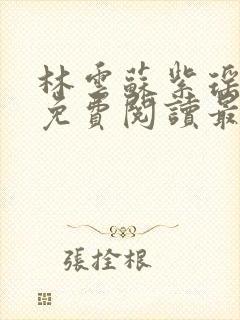 林雲蘇紫瑤
免費閱讀最
張拴根